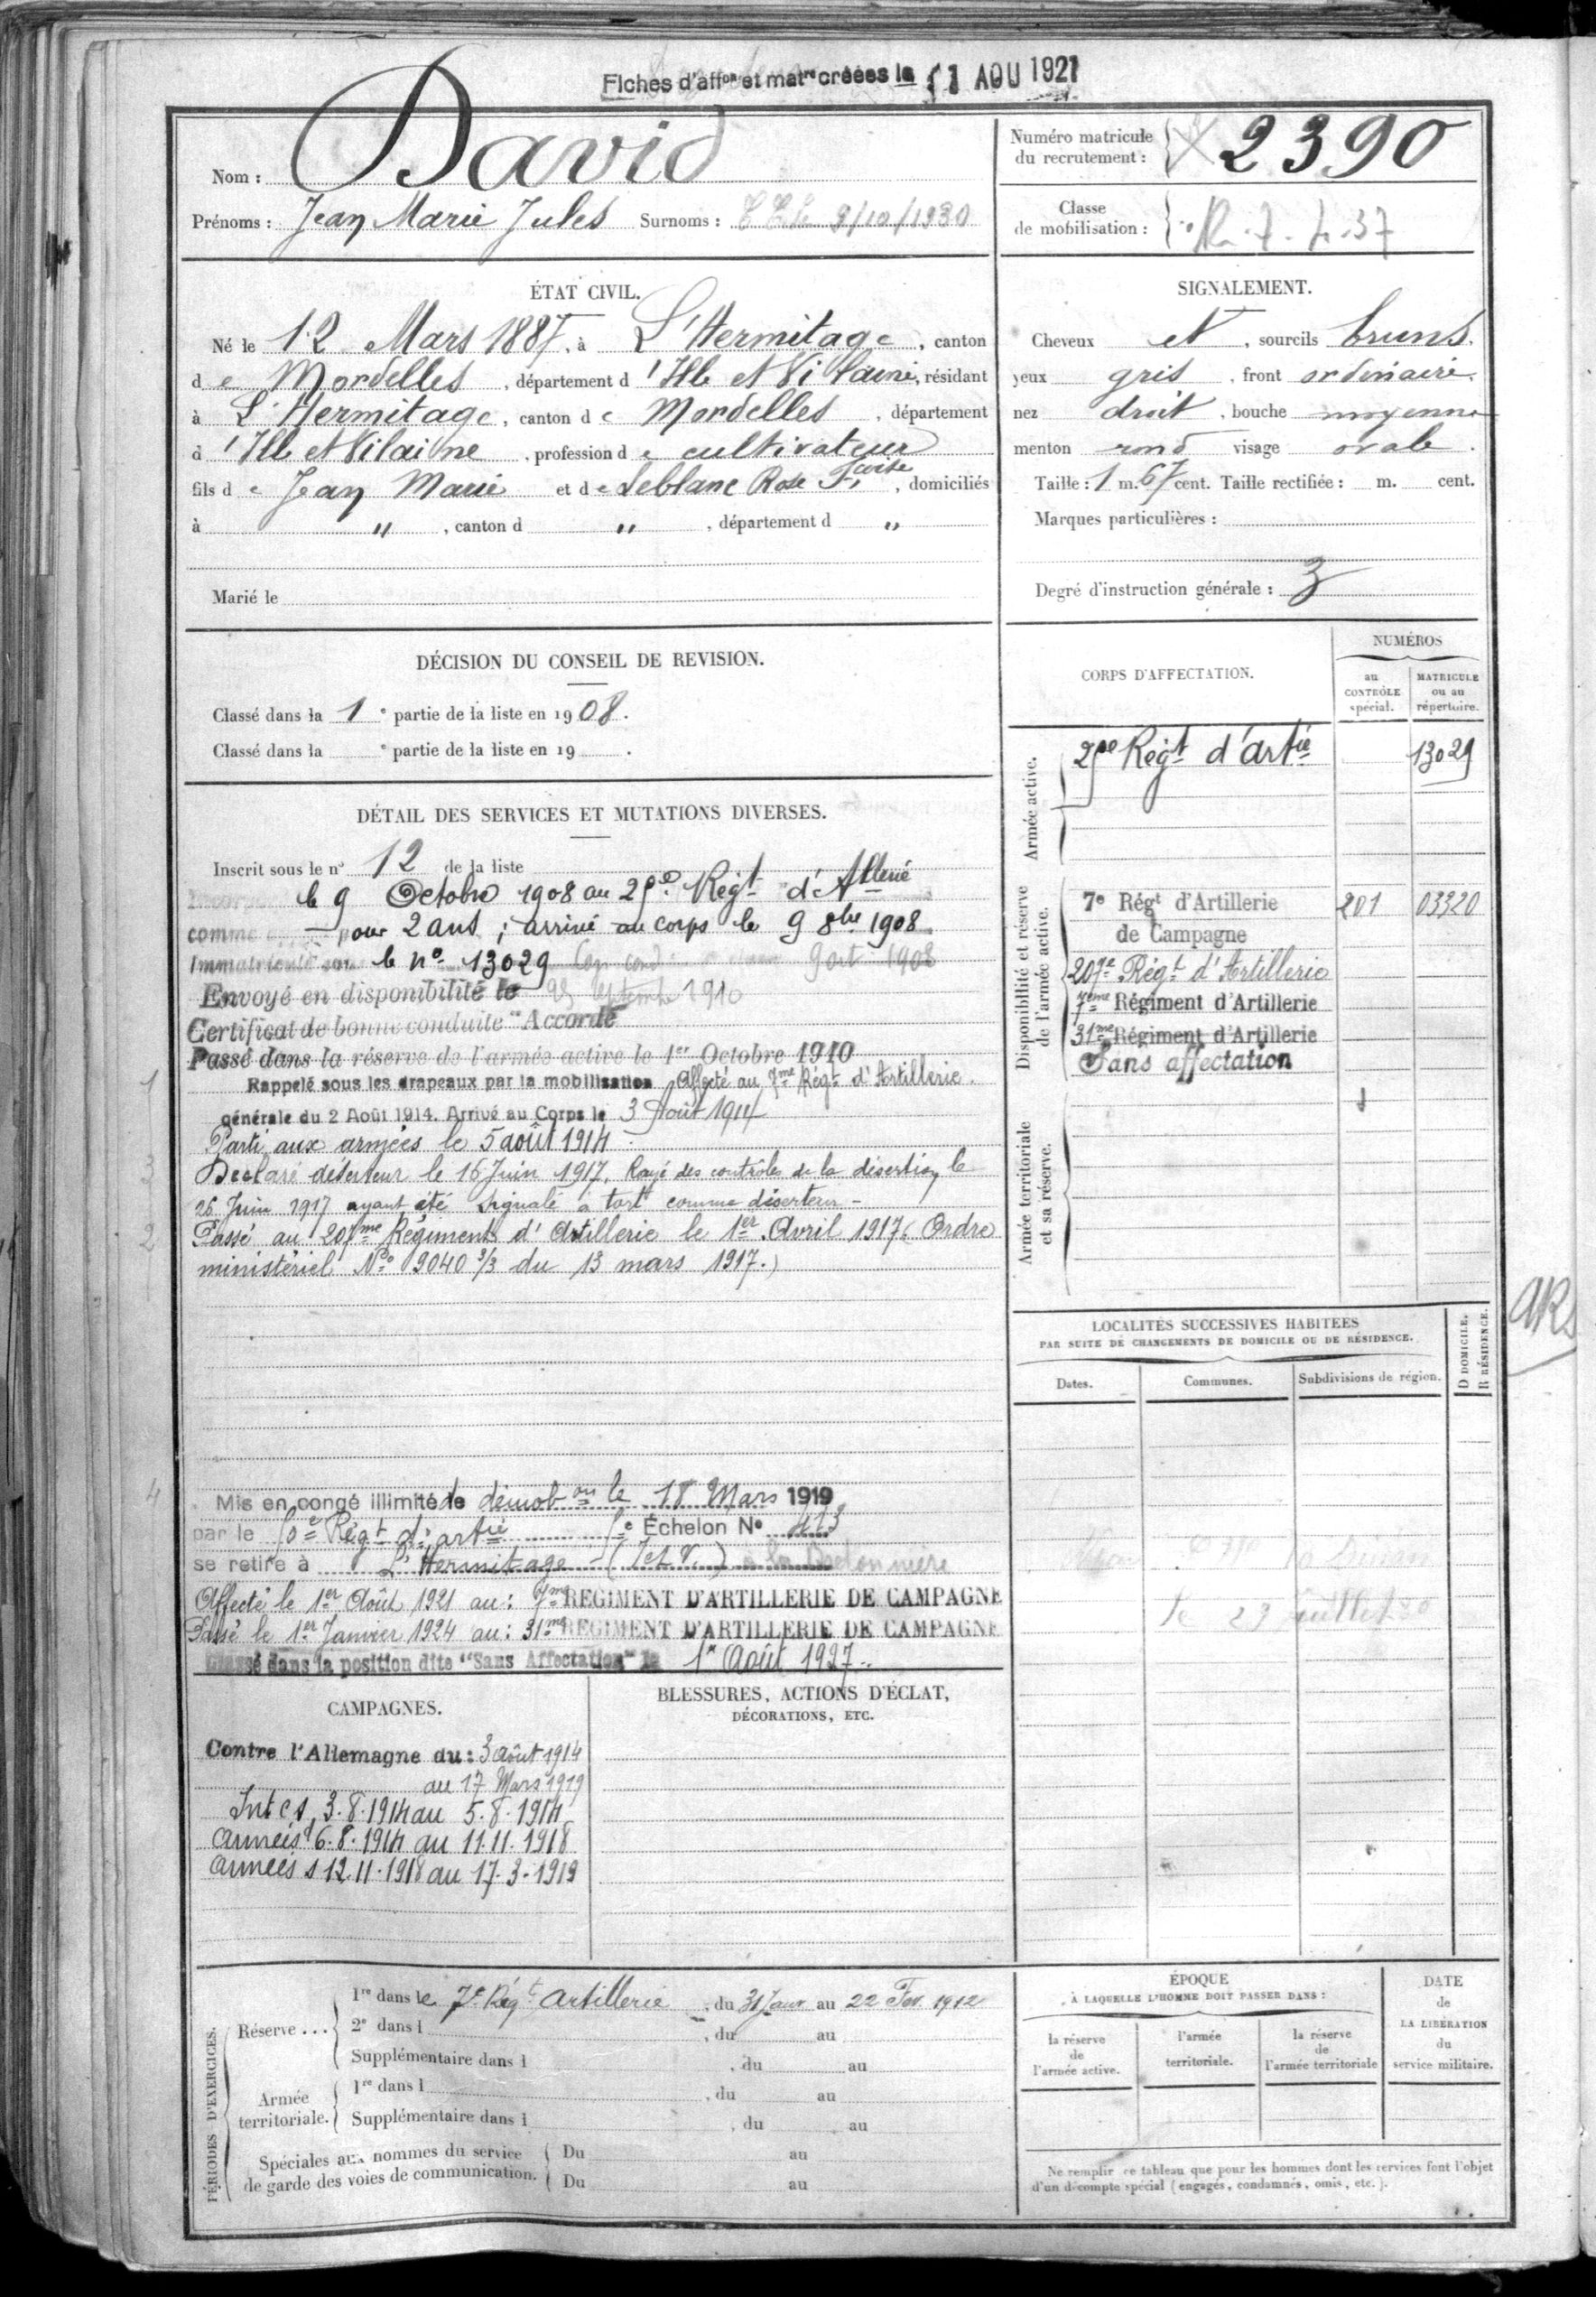 Fiches d'affon et matre créées le 1 AOU 1921
Nom : David
Prénoms : Jean Marie Jules Surnoms : 9/10/1930
Numéro matricule
du recrutement : 2390
Classe
de mobilisation :
ÉTAT CIVIL.
Né le 12 Mars 1887, à L'Hermitage, canton
de Mordelles, département d'Ille et Vilaine, résidant
à L'Hermitage, canton de Mordelles, département
d'Ille et Vilaine, profession de cultivateur
fils de Jean Marie et de Leblanc Rose, domiciliés
à ", canton d ", département d "
Marié le
SIGNALEMENT.
Cheveux et, sourcils bruns,
yeux gris, front ordinaire,
nez droit, bouche moyenne
menton rond visage ovale.
Taille : 1 m. 67 cent. Taille rectifiée : m. cent.
Marques particulières :
Degré d'instruction générale : 3
DÉCISION DU CONSEIL DE REVISION.
Classé dans la 1e partie de la liste en 1908.
Classé dans la e partie de la liste en 19 .
DÉTAIL DES SERVICES ET MUTATIONS DIVERSES.
Inscrit sous le no 12 de la liste
le 9 Octobre 1908 au Régt d'Atllerie
comme pour 2 ans ; arrivé au corps le 9 8bre 1908
Immatriculé sous le no 13029 1908
Envoyé en disponibilité le 25 septembre 1910
Certificat de bonne conduite "Accordé
Passé dans la réserve de l'armée active le 1er Octobre 1910
1 Rappelé sous les drapeaux par la mobilisation Affecté au 7me Régt d'Artillerie.
générale du 2 Août 1914. Arrivé au Corps le 3 Août 1914
Parti aux armées le 5 août 1914.
3 Déclaré déserteur le 16 Juin 1917. Rayé des contrôles de la désertion le
26 Juin 1917 ayant été signalé à tort comme déserteur -
2 Passé au 207me Régiment d'Artillerie le 1er Avril 1917 (Ordre
ministériel No 9040 3/3 du 13 mars 1917.)
4 Mis en congé illimité de démobon le 18 Mars 1919
par le 50e Régt d'artie Échelon No 413
se retire à L'Hermitage - (I et V.)
Affecté le 1er Août 1921 au : 7me RÉGIMENT D'ARTILLERIE DE CAMPAGNE
Passé le 1er Janvier 1924 au : 31me RÉGIMENT D'ARTILLERIE DE CAMPAGNE
Classé dans la position dite "Sans Affectation" le 1er Août 1927.
CORPS D'AFFECTATION.
NUMÉROS
au
CONTRÔLE
spécial.
MATRICULE
ou au
répertoire.
Armée active.
Régt d'artie 13029
Disponibilité et réserve
de l'armée active.
7e Régt d'Artillerie 201 03320
de Campagne
207e Régt d'Artillerie
7eme Régiment d'Artillerie
31me Régiment d'Artillerie
Sans affectation
Armée territoriale
et sa réserve.
LOCALITÉS SUCCESSIVES HABITÉES
PAR SUITE DE CHANGEMENTS DE DOMICILE OU DE RÉSIDENCE.
D DOMICILE.
R RÉSIDENCE.
Dates.
Communes.
Subdivisions de région.
le 29 Juillet 30
CAMPAGNES.
Contre l'Allemagne du : 3 Août 1914
au 17 Mars 1919
Int cs 3.8.1914 au 5.8.1914
Armées d 6.8.1914 au 11.11.1918
Armées s 12.11.1918 au 17.3.1919
BLESSURES, ACTIONS D'ÉCLAT,
DÉCORATIONS, ETC.
PÉRIODES D'EXERCICES.
Réserve ...
1re dans le 7e Régt Artillerie, du 31 Janv au 22 Fev. 1912
2e dans l , du au
Supplémentaire dans l , du au
Armée
territoriale.
1re dans l , du au
Supplémentaire dans l , du au
Spéciales aux hommes du service
de garde des voies de communication.
Du au
Du au
ÉPOQUE
À LAQUELLE L'HOMME DOIT PASSER DANS :
la réserve
de
l'armée active.
l'armée
territoriale.
la réserve
de
l'armée territoriale
DATE
de
LA LIBÉRATION
du
service militaire.
Ne remplir ce tableau que pour les hommes dont les services font l'objet
d'un décompte spécial (engagés, condamnés, omis, etc.).